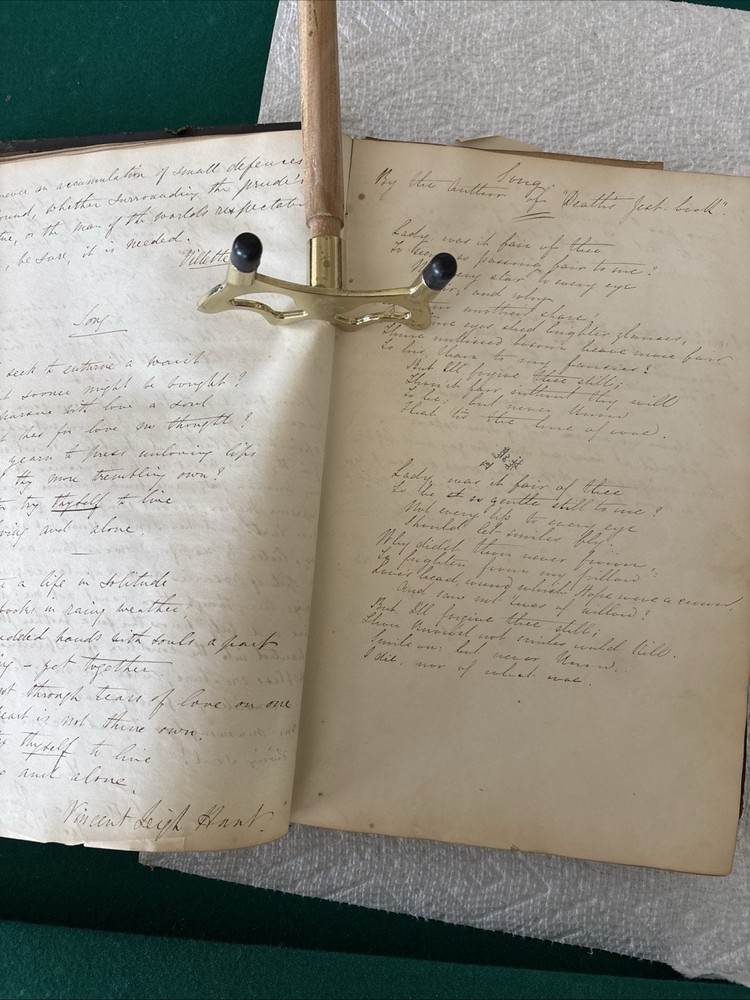 never an accumulation of small defences
ound, whether surrounding the prude's
tue, or the man of the world's respectabi
, be sure, it is needed.
Villette
Song
seek to enturne a waist
t sooner might be bought?
harness with love a soul
t has for love no thought?
yearn to press unloving lips
thy more trembling own?
try thyself to live
oving and alone.
a life in solitude
books in rainy weather,
hands with souls apart
ng - get together
st through tears of love on one
heart is not thine own.
try thyself to live
e and alone.
Vincent Leigh Hunt.
Song
By the Author of "Death's Jest-book".
Lady, was it fair of thee
To seem so passing fair to me?
every star to every eye
and why
another share;
eyes shed brighter glances,
Thine unkissed bosom heave more fair
To his, than to my fancies?
But I'll forgive thee still;
Thou'rt fair without thy will
So be; but never know
That 'tis the hue of woe.
Lady, was it fair of thee
To be so gentle still to me?
Not every lip to every eye
Should let smiles fly.
Why didst thou never frown,
To frighten from my pillow
Love's head, round which Hope wove a crown,
And saw not 'twas of willow?
But I'll forgive thee still;
Thou knew'st not smiles could kill.
Smile on: but never know
I die, nor of what woe.